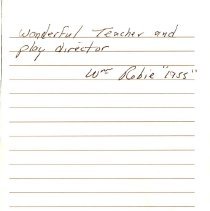 Wonderful Teacher and
play director
Wm Robie "1955"